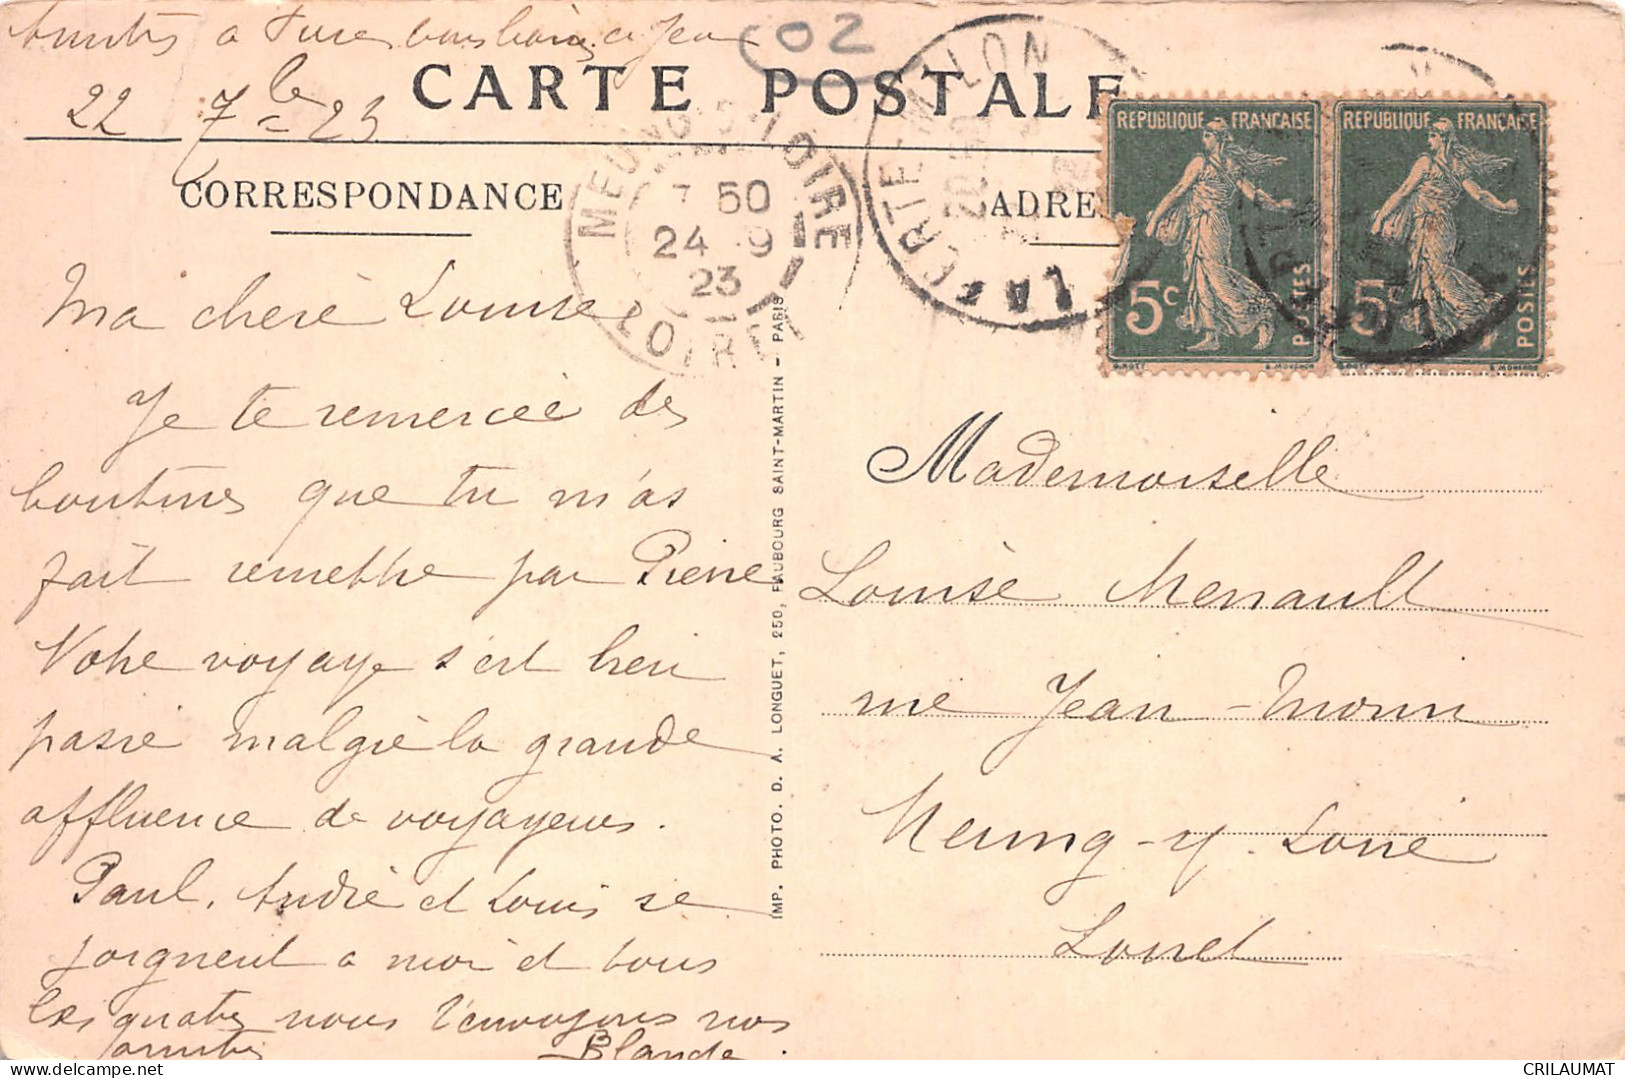 Amitiés a
22 7bre 23
02
CARTE POSTALE
CORRESPONDANCE
ADRE
MEUNG-S-LOIRE
7 50
24 -9
23
LOIRET
LA FERTE-MILON
REPUBLIQUE FRANÇAISE
5c POSTES
REPUBLIQUE FRANÇAISE
5c POSTES
Ma cheré Louise
Je te remerciè des
que tu m'as
fait remettre par Pierre
Votre voyage s'est bien
passé malgré la grande
affluence de voyageurs.
Paul, André et Louis se
joignent a moi et tous
les quatres nous t'envoyons nos
amitiés Blande
IMP. PHOTO. D. A. LONGUET, 250, FAUBOURG SAINT-MARTIN - PARIS
Mademoiselle
Louise Menault
rue Jean-Monin
Meung-s/ Loire
Loiret
CRILAUMAT